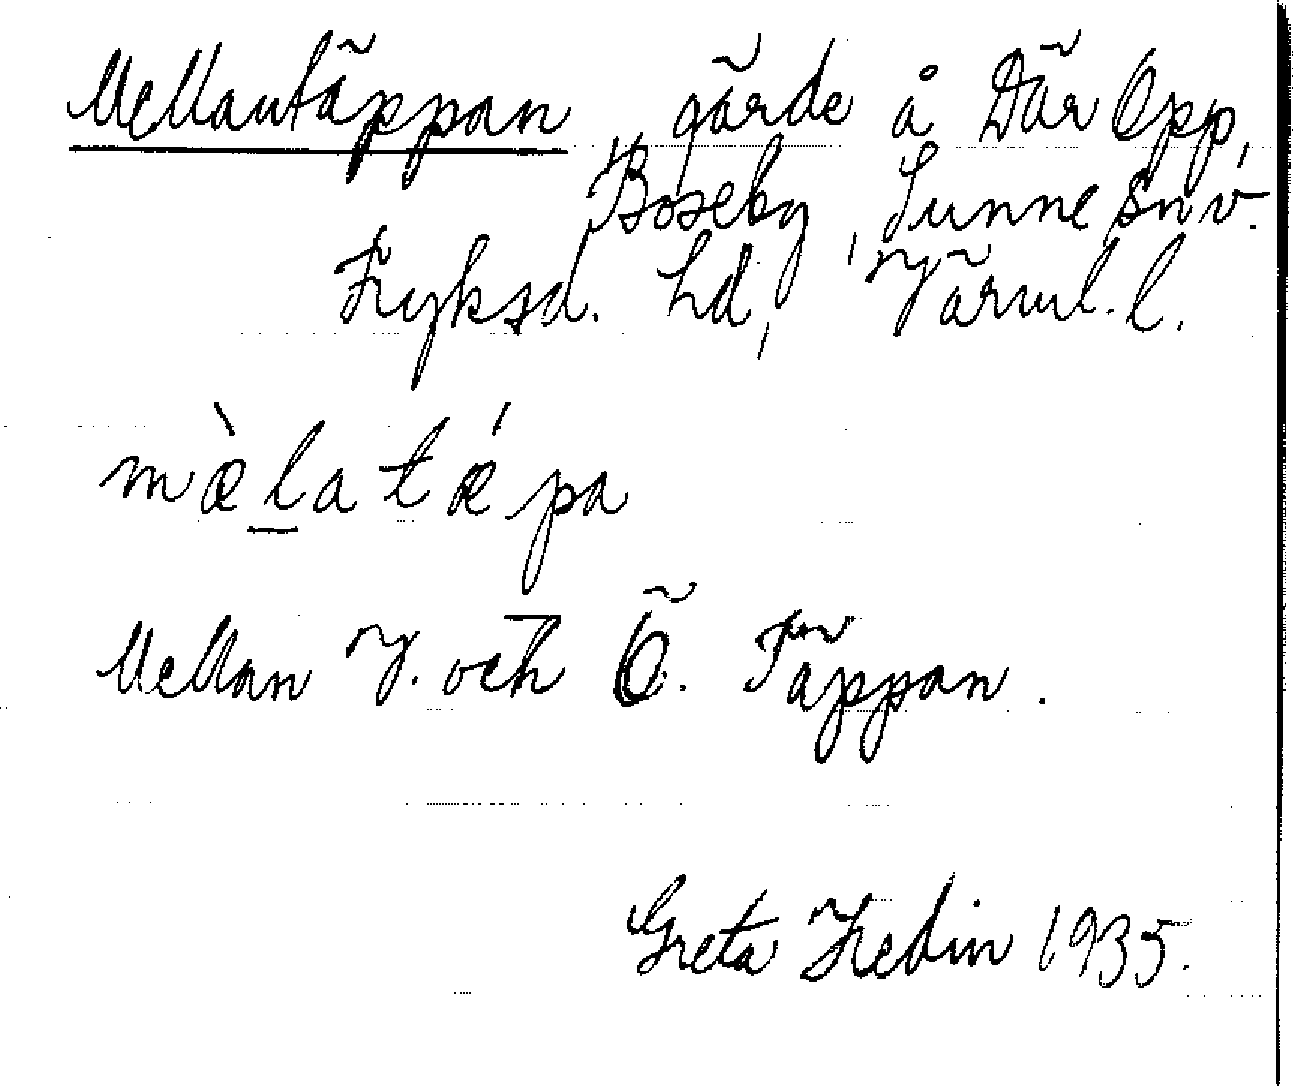 Mellantäppan gärde å Där Opp,
Bøseby, Sunne snv.
Fryksd. hd, Värml. l.
mæ̀latǽpa
Mellan Y. och Ö. Täppan.
Greta Hedin 1935.